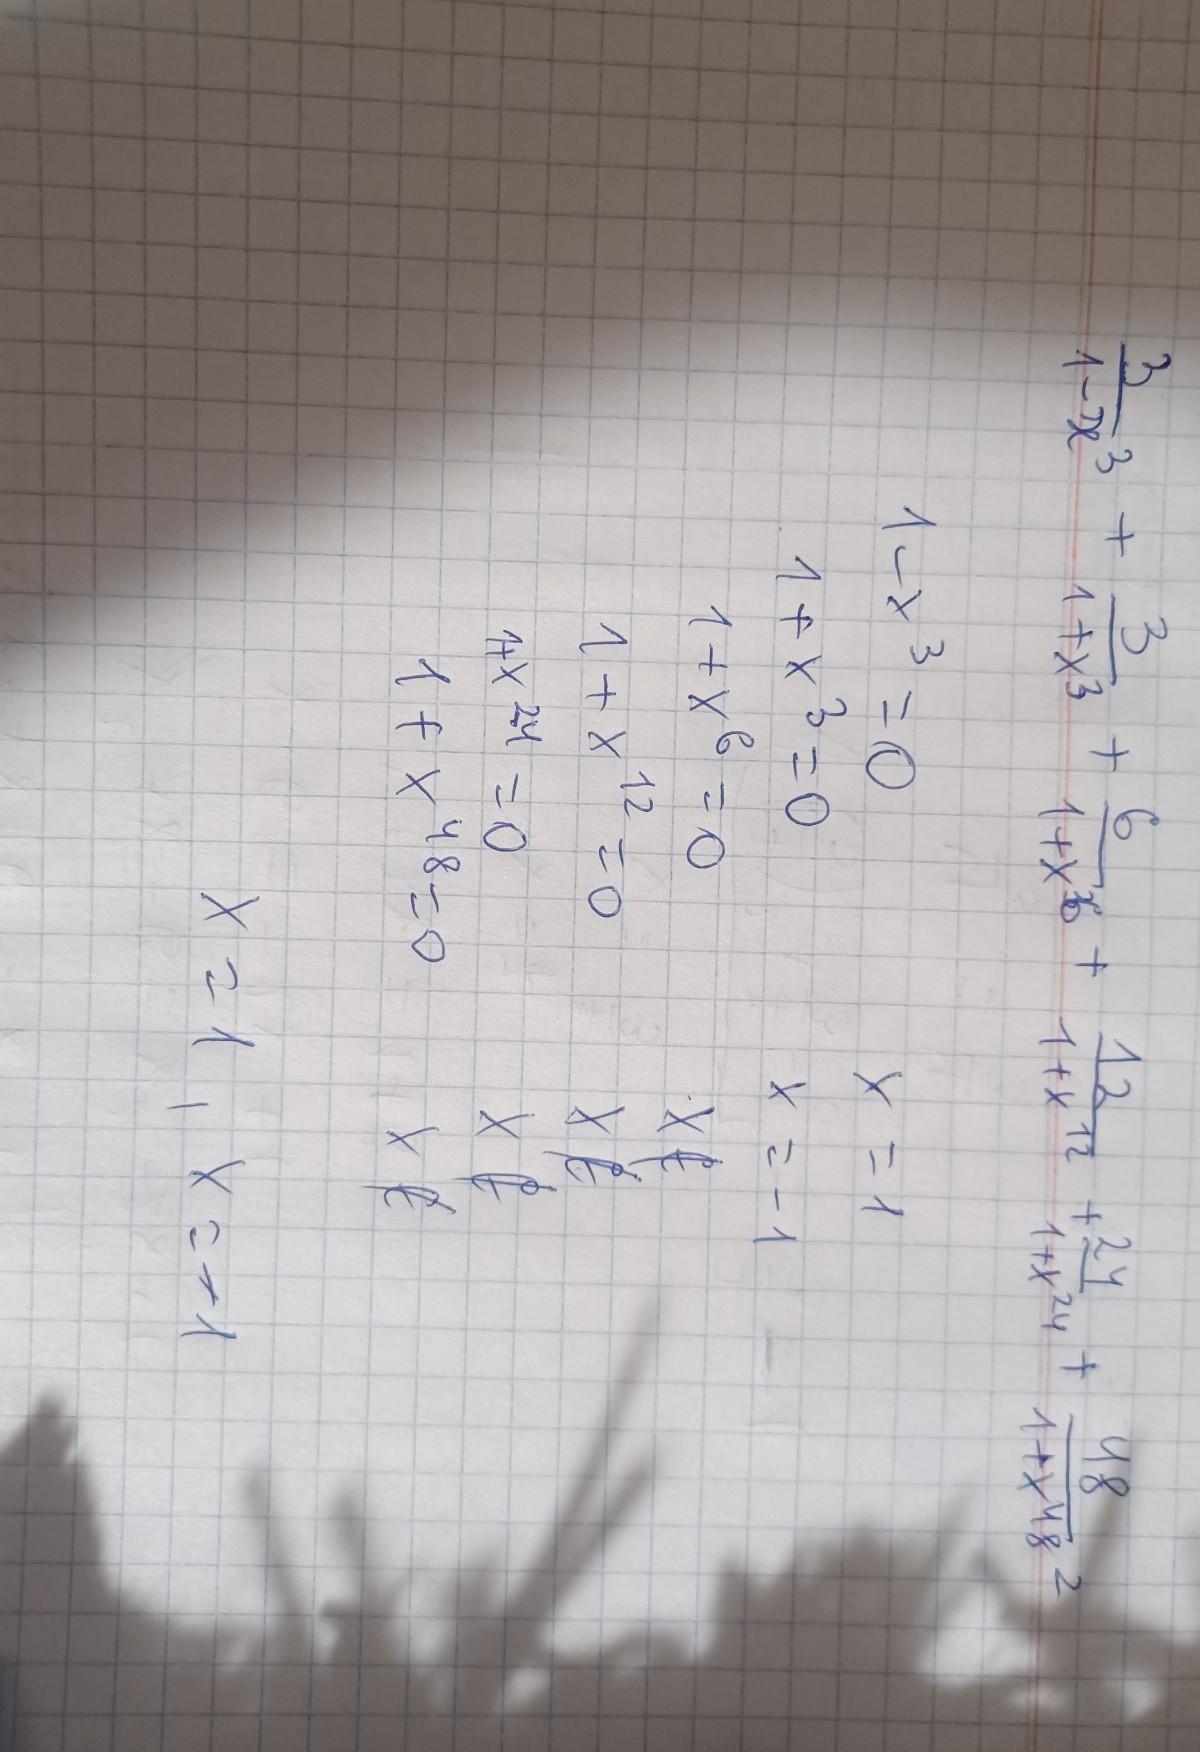 3/(1-x³) + 3/(1+x³) + 6/(1+x⁶) + 12/(1+x¹²) + 24/(1+x²⁴) + 48/(1+x⁴⁸) 2
1-x³=0 x=1
1+x³=0 x=-1
1+x⁶=0 x∉
1+x¹²=0 x∉
1+x²⁴=0 x∉
1+x⁴⁸=0 x∉
x=1, x=-1